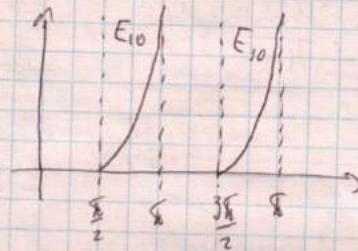 E₁₀ E₁₀
π/2 π 3π/2 π